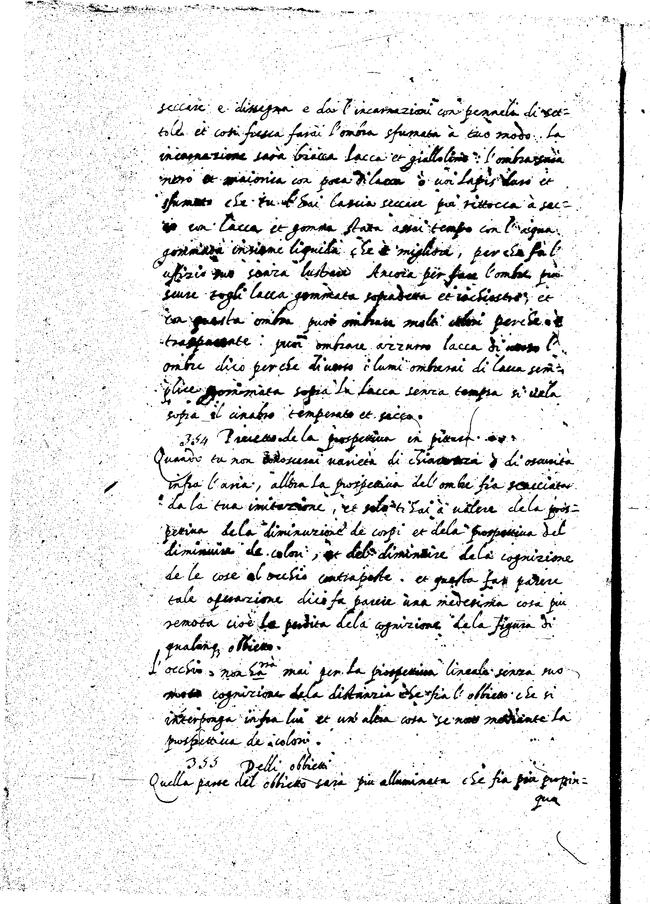 seccare e dissegna e dai l'incarnazioni con pennelli di set=
tole et cosi fresca farai l'ombra sfumata a tuo modo. la
incarnazione sara biacca lacca et giallolino: l'ombra sara
nero et maiorica con poca di lacca o voi lapis duro et
sfumato che tu l'hai lascia seccare poi rittocca a sec=
co con lacca et gomma stata assai tempo con l'aqua
gommata insieme liquida che è migliore, perche fa l'
ufizio suo senza lustrare Ancora per fare l'ombre piu
scure togli lacca gommata sopradetta et inchiostro, et
con questa ombra puoi ombrare molti colori perche è
trasparente: puoi ombrare azzurro lacca di verso l'
ombre dico perche di verso i lumi ombrerai di lacca sem=
plice gommata sopra la lacca senza tempra si vela
sopra il cinabro temperato et secco.
354 Precetto de la prospettiva in pittura
Quando tu non conoscerai varieta di chiarezza o di oscurità
infra l'aria, allhra la prospettiva del'ombre fia scacciata
da la tua imitazione, et solo ti hai à valere dela pros=
pettiva dela diminuzione de corpi et dela prospettiva del
diminuire de colori, et del diminuire dela cognizione
de le cose al occhio contraposte. et questa fan parere
tale operazione dico fa parere una medesima cosa piu
remota cioè la perdita dela cognizione dela figura di
qualunq; obbietto.
L'occhio non harà mai per la prospettiva lineale senza suo
moto cognizione dela distanzia che fia l'obbietto che si
interponga infra lui et un'altra cosa se non mediante la
prospettiva de colori.
355 Delli obbietti
Quella parte del obbietto sara piu alluminata che fia piu propin=
qua